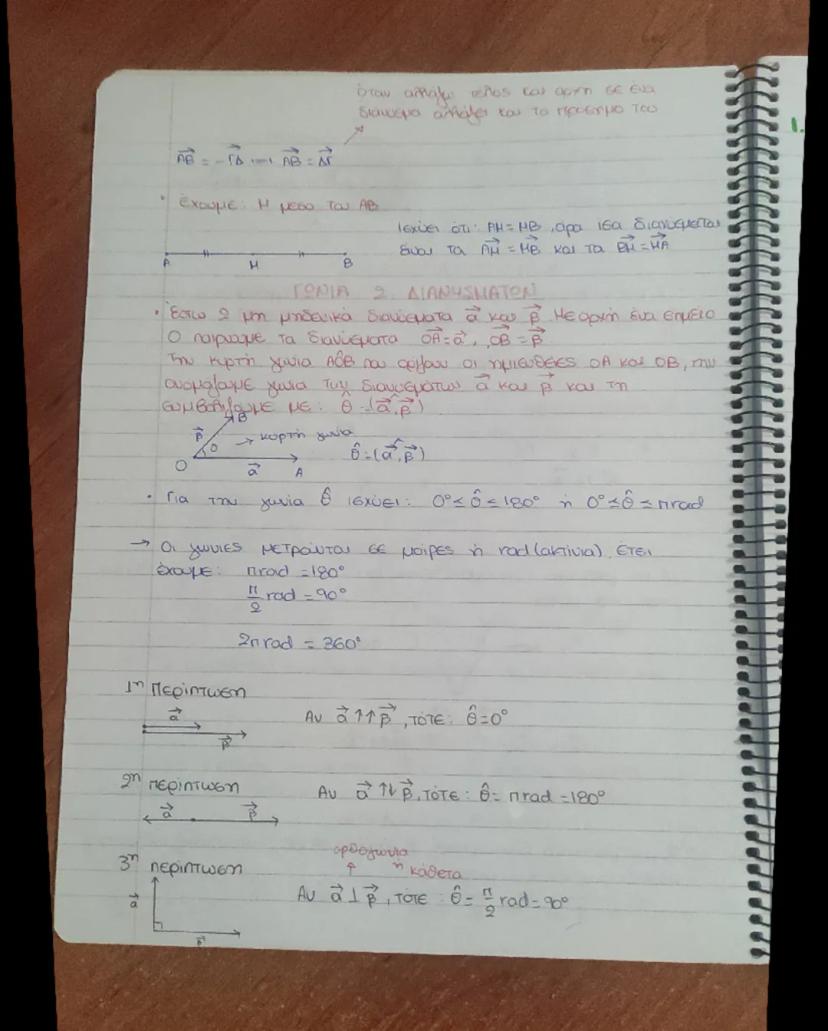 όταν αλλάζω τέλος και αρχή σε ένα
διάνυσμα αλλάζει και το πρόσημο του
1.
AB = -ΓΔ AB = ΔΓ
• Έχουμε: Μ μέσο του ΑΒ
Ισχύει ότι: ΑΜ=ΜΒ, άρα ίσα διανύσματα
είναι τα ΑΜ = ΜΒ και τα ΒΜ = ΜΑ
A M B
ΓΩΝΙΑ 2 ΔΙΑΝΥΣΜΑΤΩΝ
• Έστω 2 μη μηδενικά διανύσματα α και β. Με αρχή ένα σημείο
Ο παίρνουμε τα διανύσματα ΟΑ=α, ΟΒ=β
Την κυρτή γωνία ΑÔΒ που ορίζουν οι ημιευθείες ΟΑ και ΟΒ, την
ονομάζουμε γωνία των διανυσμάτων α και β και τη
συμβολίζουμε με: θ̂ = (α,β)
B
β θ → κυρτή γωνία
O α A θ̂ = (α,β)
• Για την γωνία θ̂ ισχύει: 0° ≤ θ̂ ≤ 180° ή 0° ≤ θ̂ ≤ π rad
→ Οι γωνίες μετρούνται σε μοίρες ή rad (ακτίνια). Έτσι
έχουμε: π rad = 180°
π/2 rad = 90°
2π rad = 360°
1η Περίπτωση
α
β
Αν α ↑↑ β, τότε: θ̂ = 0°
2η περίπτωση
α β
Αν α ↑↓ β, τότε: θ̂ = π rad = 180°
3η περίπτωση
ορθογώνια
↑ ή κάθετα
Αν α ⊥ β, τότε: θ̂ = π/2 rad = 90°
α
β